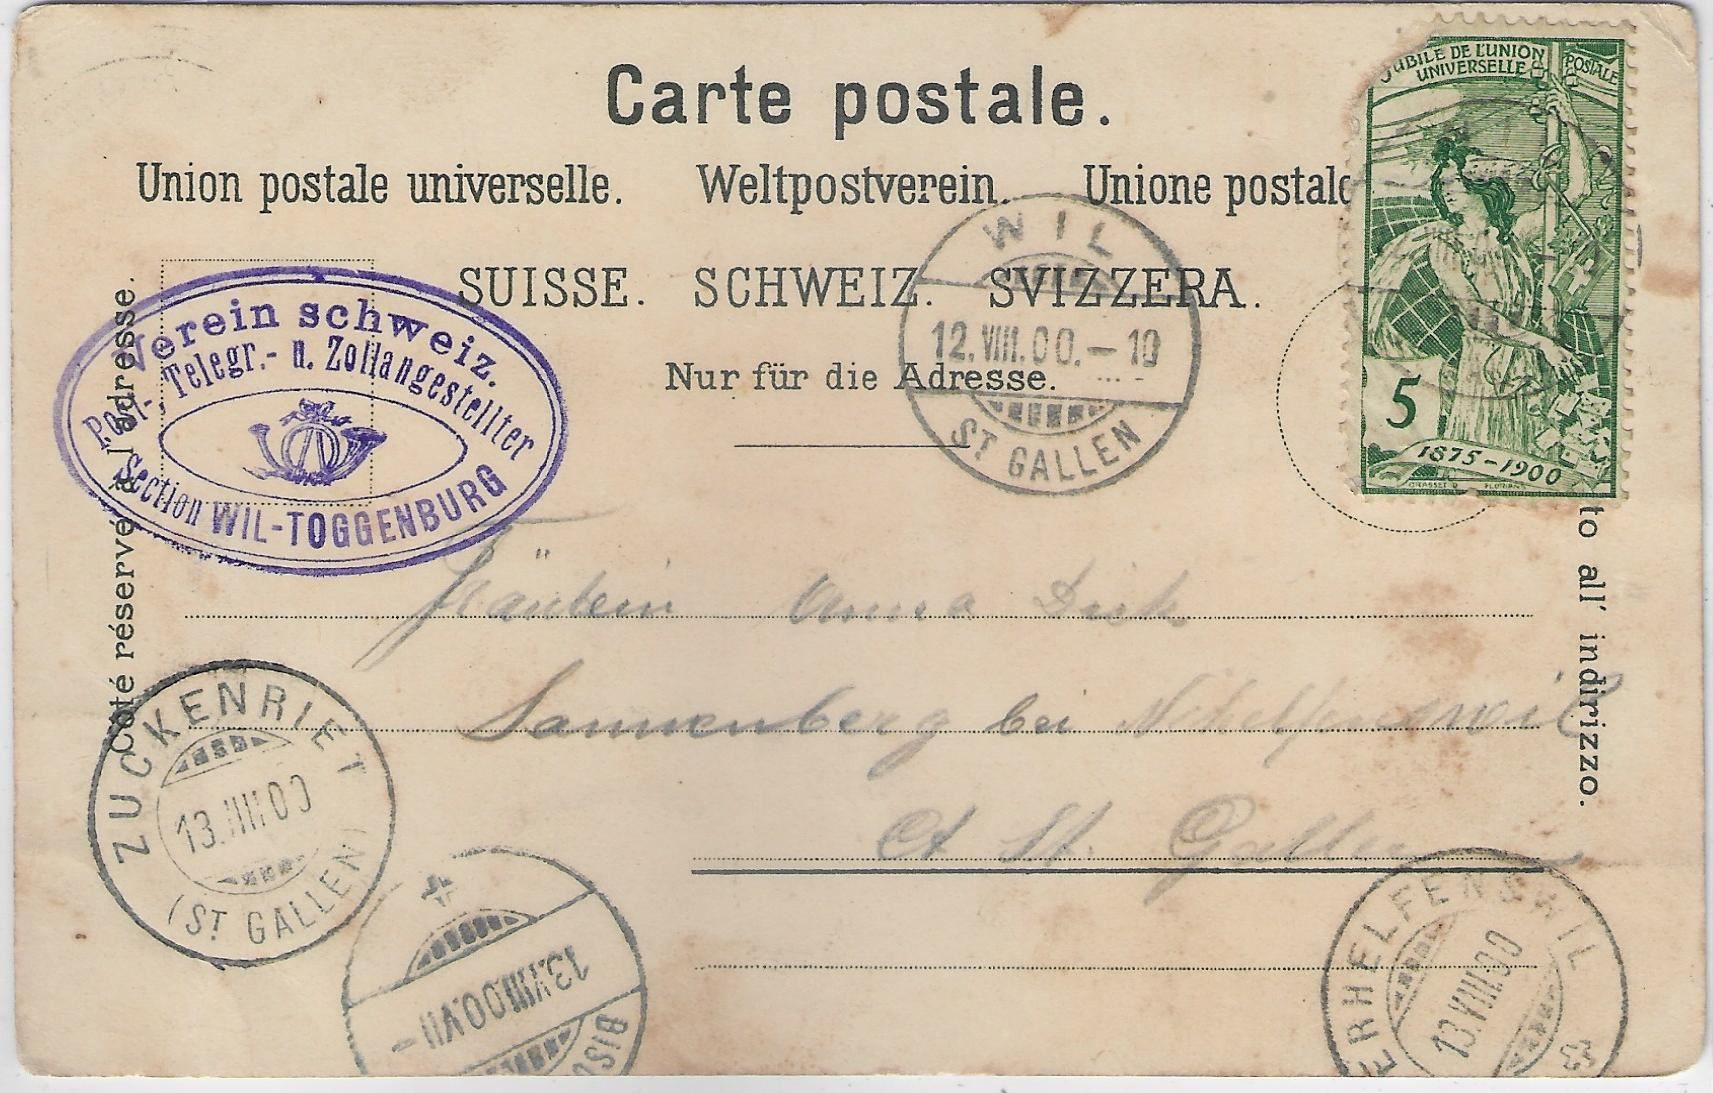 Carte postale.
Union postale universelle. Weltpostverein. Unione postale
SUISSE. SCHWEIZ. SVIZZERA.
Nur für die Adresse.
Côté réservé à l'adresse.
to all' indirizzo.
JUBILE DE L'UNION POSTALE
UNIVERSELLE
5
1875-1900
GRASSET D FLORIAN
Verein schweiz.
Post-, Telegr.- u. Zollangestellter
Section WIL-TOGGENBURG
WIL
12.VIII.00.-10
ST GALLEN
Fräulein Anna
Sannenberg bei
Ct St. Gallen
ZUCKENRIET
13.VIII.00
(ST GALLEN)
13.VIII.00.VII-
BISC
ERHELFENSWIL
13.VIII.00